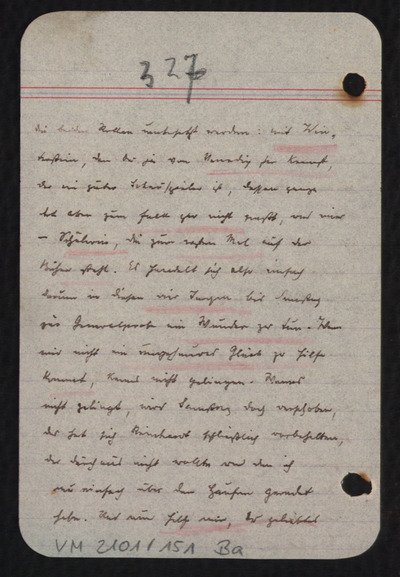 327
die beiden Rollen umbesetzt werden: mit Win-
terstein, den Du ja von Venedig her kennst,
der ein guter Schauspieler ist, dessen
ist aber zum gar nicht paßt, und einer
– Schülerin, die zum ersten Mal auf der
Bühne steht. Es handelt sich also einfach
darum in diesen vier Tagen bis Samstag
zur Generalprobe ein Wunder zu tun. Wenn
mir nicht ein ungeheures Glück zu Hilfe
kommt, kann's nicht gelingen. Wenn's
nicht gelingt, wird Samstag doch verschoben,
das hat sich Reinhardt schließlich vorbehalten,
der durchaus nicht wollte und den ich
nur einfach über den Haufen geredet
habe. Und nun hilf mir, Du geliebtes
VM 2101 / 151 Ba